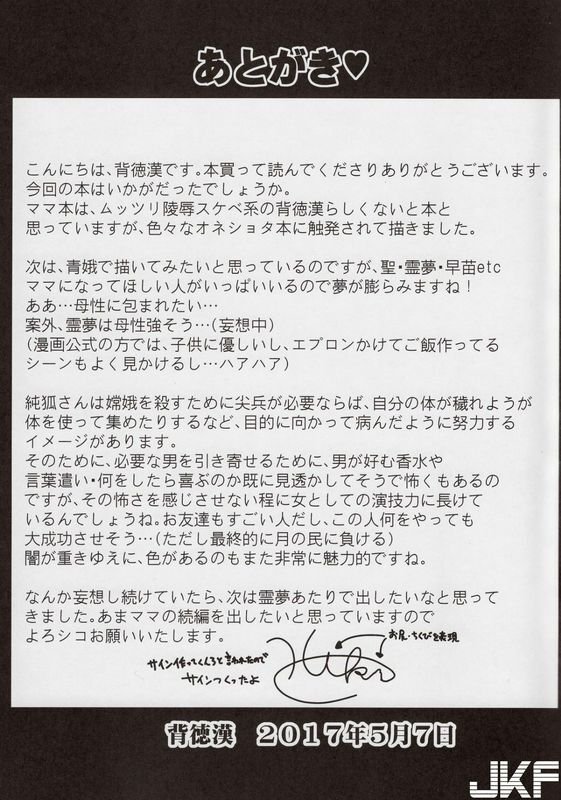 あとがき♡
こんにちは、背徳漢です。本買って読んでくださりありがとうございます。
今回の本はいかがだったでしょうか。
ママ本は、ムッツリ陵辱スケベ系の背徳漢らしくないと本と
思っていますが、色々なオネショタ本に触発されて描きました。
次は、青娥で描いてみたいと思っているのですが、聖・霊夢・早苗etc
ママになってほしい人がいっぱいいるので夢が膨らみますね！
ああ…母性に包まれたい…
案外、霊夢は母性強そう…（妄想中）
（漫画公式の方では、子供に優しいし、エプロンかけてご飯作ってる
シーンもよく見かけるし…ハアハア）
純狐さんは嫦娥を殺すために尖兵が必要ならば、自分の体が穢れようが
体を使って集めたりするなど、目的に向かって病んだように努力する
イメージがあります。
そのために、必要な男を引き寄せるために、男が好む香水や
言葉遣い・何をしたら喜ぶのか既に見透かしてそうで怖くもあるの
ですが、その怖さを感じさせない程に女としての演技力に長けて
いるんでしょうね。お友達もすごい人だし、この人何をやっても
大成功させそう…（ただし最終的に月の民に負ける）
闇が重きゆえに、色があるのもまた非常に魅力的ですね。
なんか妄想し続けていたら、次は霊夢あたりで出したいなと思って
きました。あまママの続編を出したいと思っていますので
よろシコお願いいたします。
お尻・ちくびを表現
サイン作ってくんろと言われたので
サインつくったよ
背徳漢 2017年5月7日
JKF